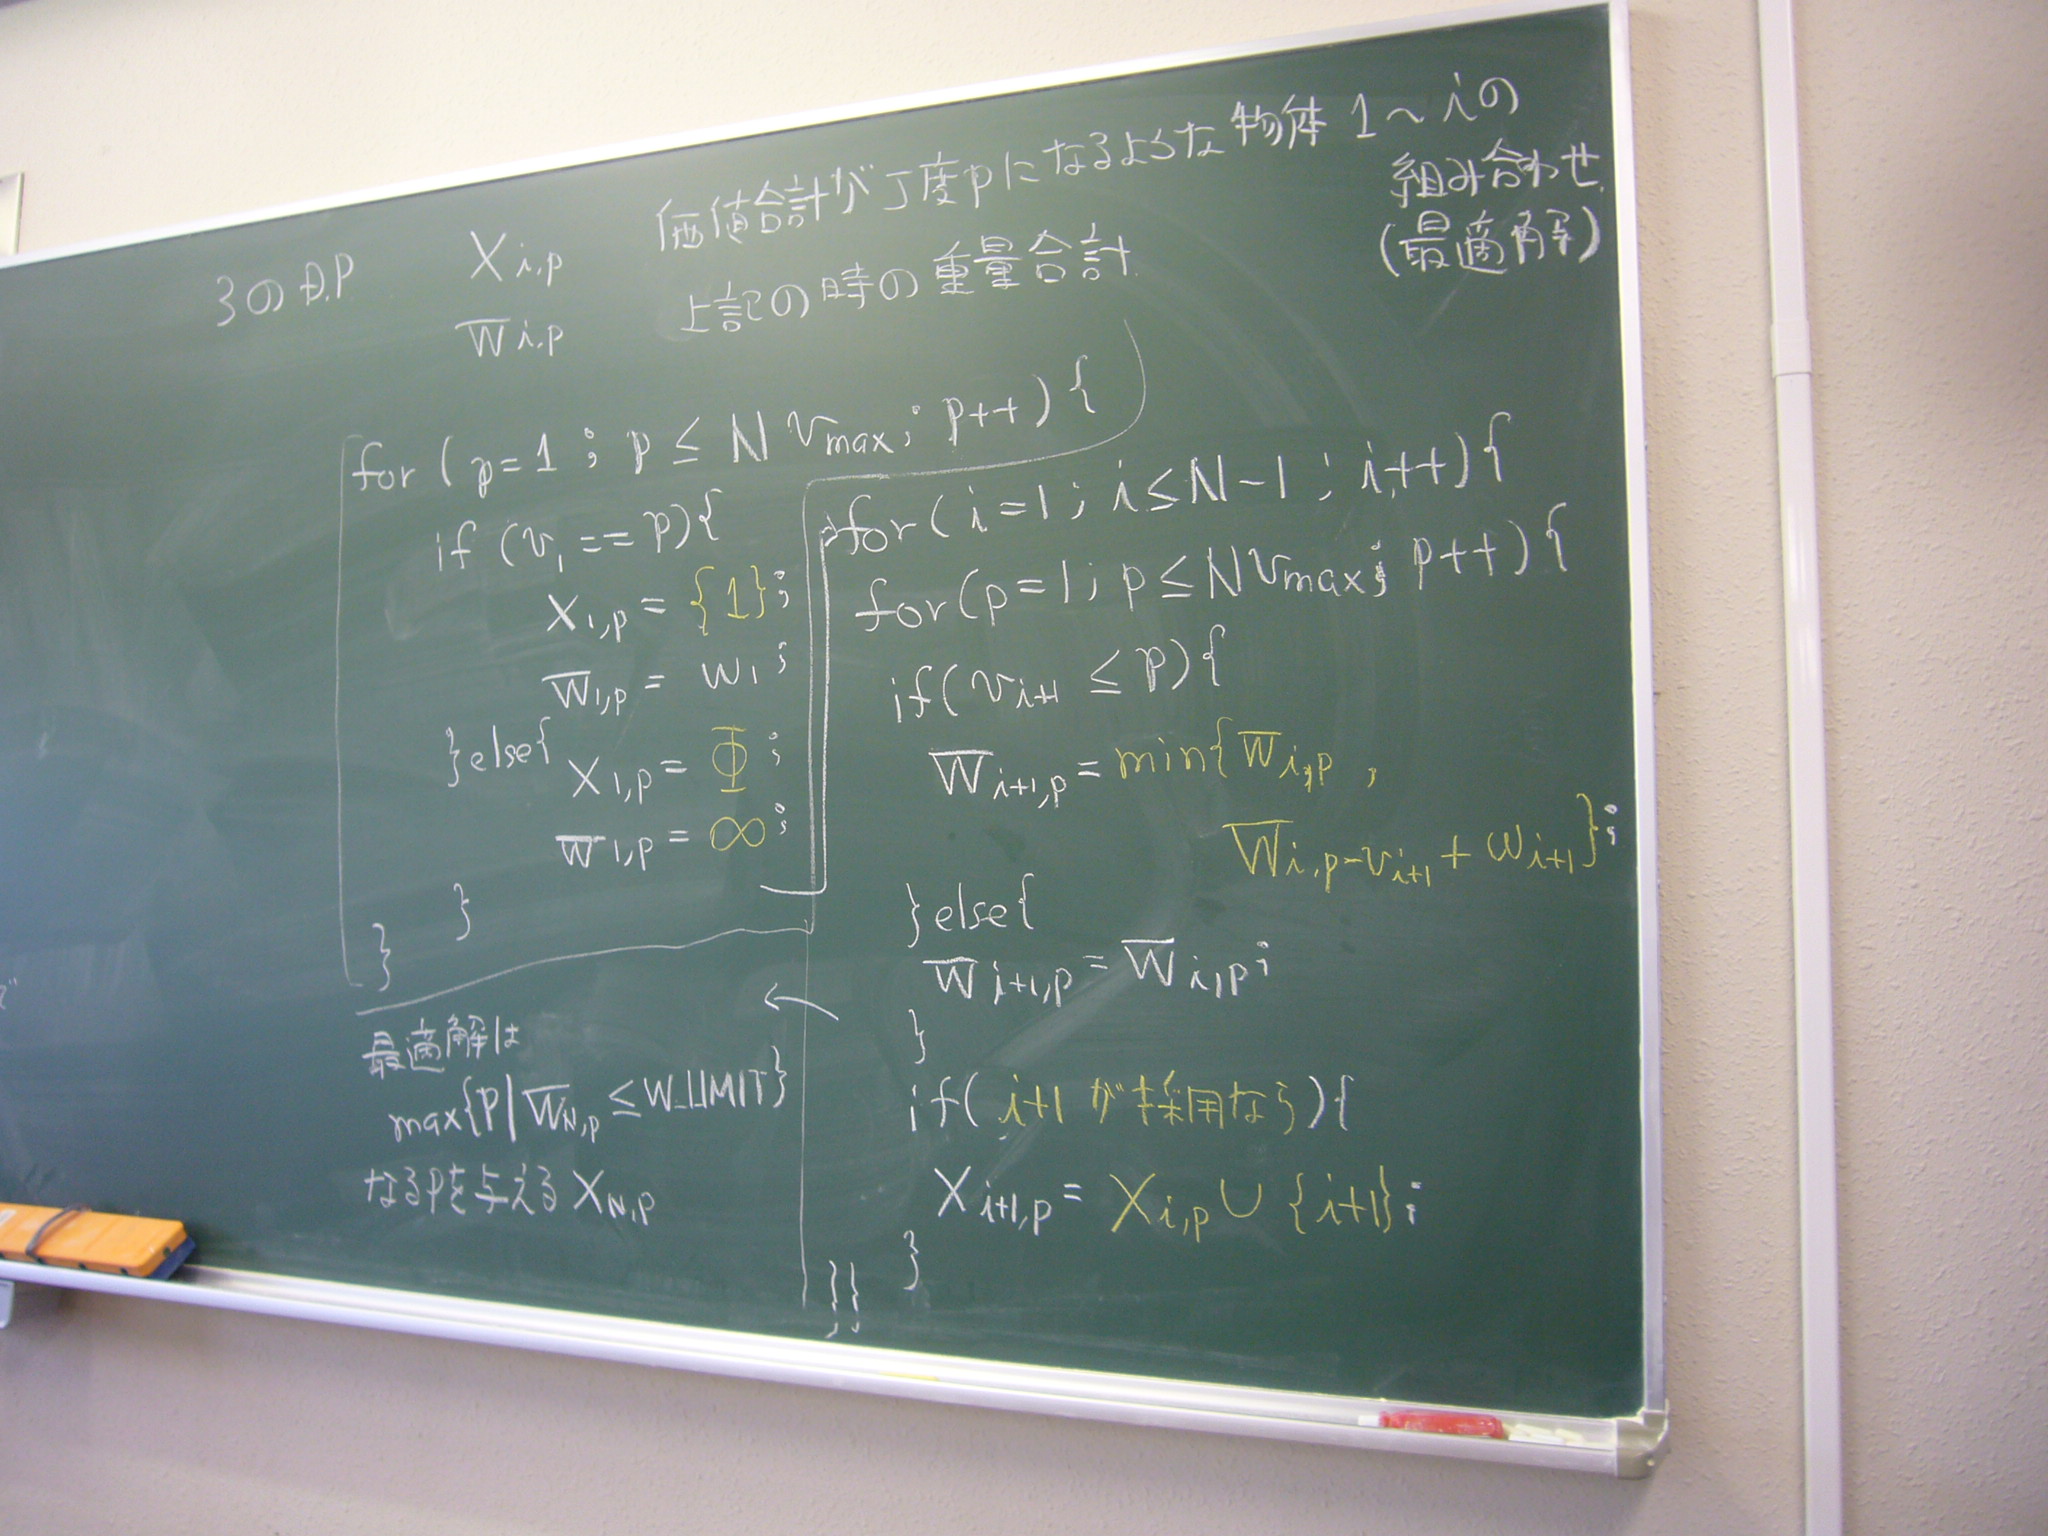 3のD.P
X i,p 価値合計が丁度pになるような物体1～iの
組み合わせ
(最適解)
W̅ i,p 上記の時の重量合計
for (p=1; p ≤ N vmax; p++){
if (v1 == p){
X1,p = {1};
W̅1,p = w1;
}else{ X1,p = Φ;
W̅1,p = ∞;
}
}
for(i=1; i≤N-1; i++){
for(p=1; p≤Nvmax; p++){
if(vi+1 ≤ p){
W̅i+1,p = min{W̅i,p ,
W̅i,p-vi+1 + wi+1};
}else{
W̅i+1,p = W̅i,p;
}
if(i+1が採用なら){
Xi+1,p = Xi,p ∪ {i+1};
}
}}
最適解は
max{P | W̅N,p ≤ W_LIMIT}
なるPを与える XN,p